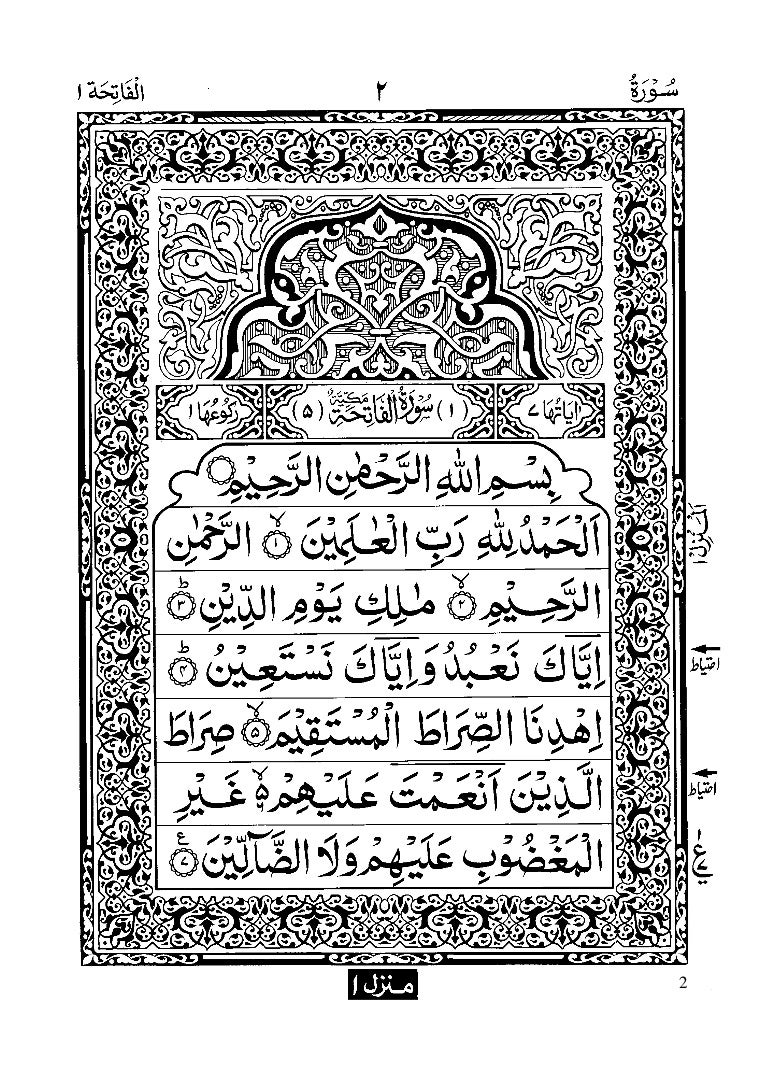 سُوْرَةُ ٢ اَلْفَاتِحَة ١
اٰيَاتُهَا ٧ (١) سُوْرَةُ الْفَاتِحَةِ مَكِّيَّةٌ (٥) رُكُوْعُهَا ١
بِسْمِ اللّٰهِ الرَّحْمٰنِ الرَّحِيْمِ
اَلْحَمْدُ لِلّٰهِ رَبِّ الْعٰلَمِيْنَ ۙ ١ الرَّحْمٰنِ
اَلْمَنْزِل ١
الرَّحِيْمِ ۙ ٢ مٰلِكِ يَوْمِ الدِّيْنِ ؕ ٣
اِيَّاكَ نَعْبُدُ وَاِيَّاكَ نَسْتَعِيْنُ ؕ ٤
احتیاط
اِهْدِنَا الصِّرَاطَ الْمُسْتَقِيْمَ ۙ ٥ صِرَاطَ
الَّذِيْنَ اَنْعَمْتَ عَلَيْهِمْ ۙ۵ غَيْرِ
احتیاط
الْمَغْضُوْبِ عَلَيْهِمْ وَلَا الضَّآلِّيْنَ ع ٧
منزل ١
2